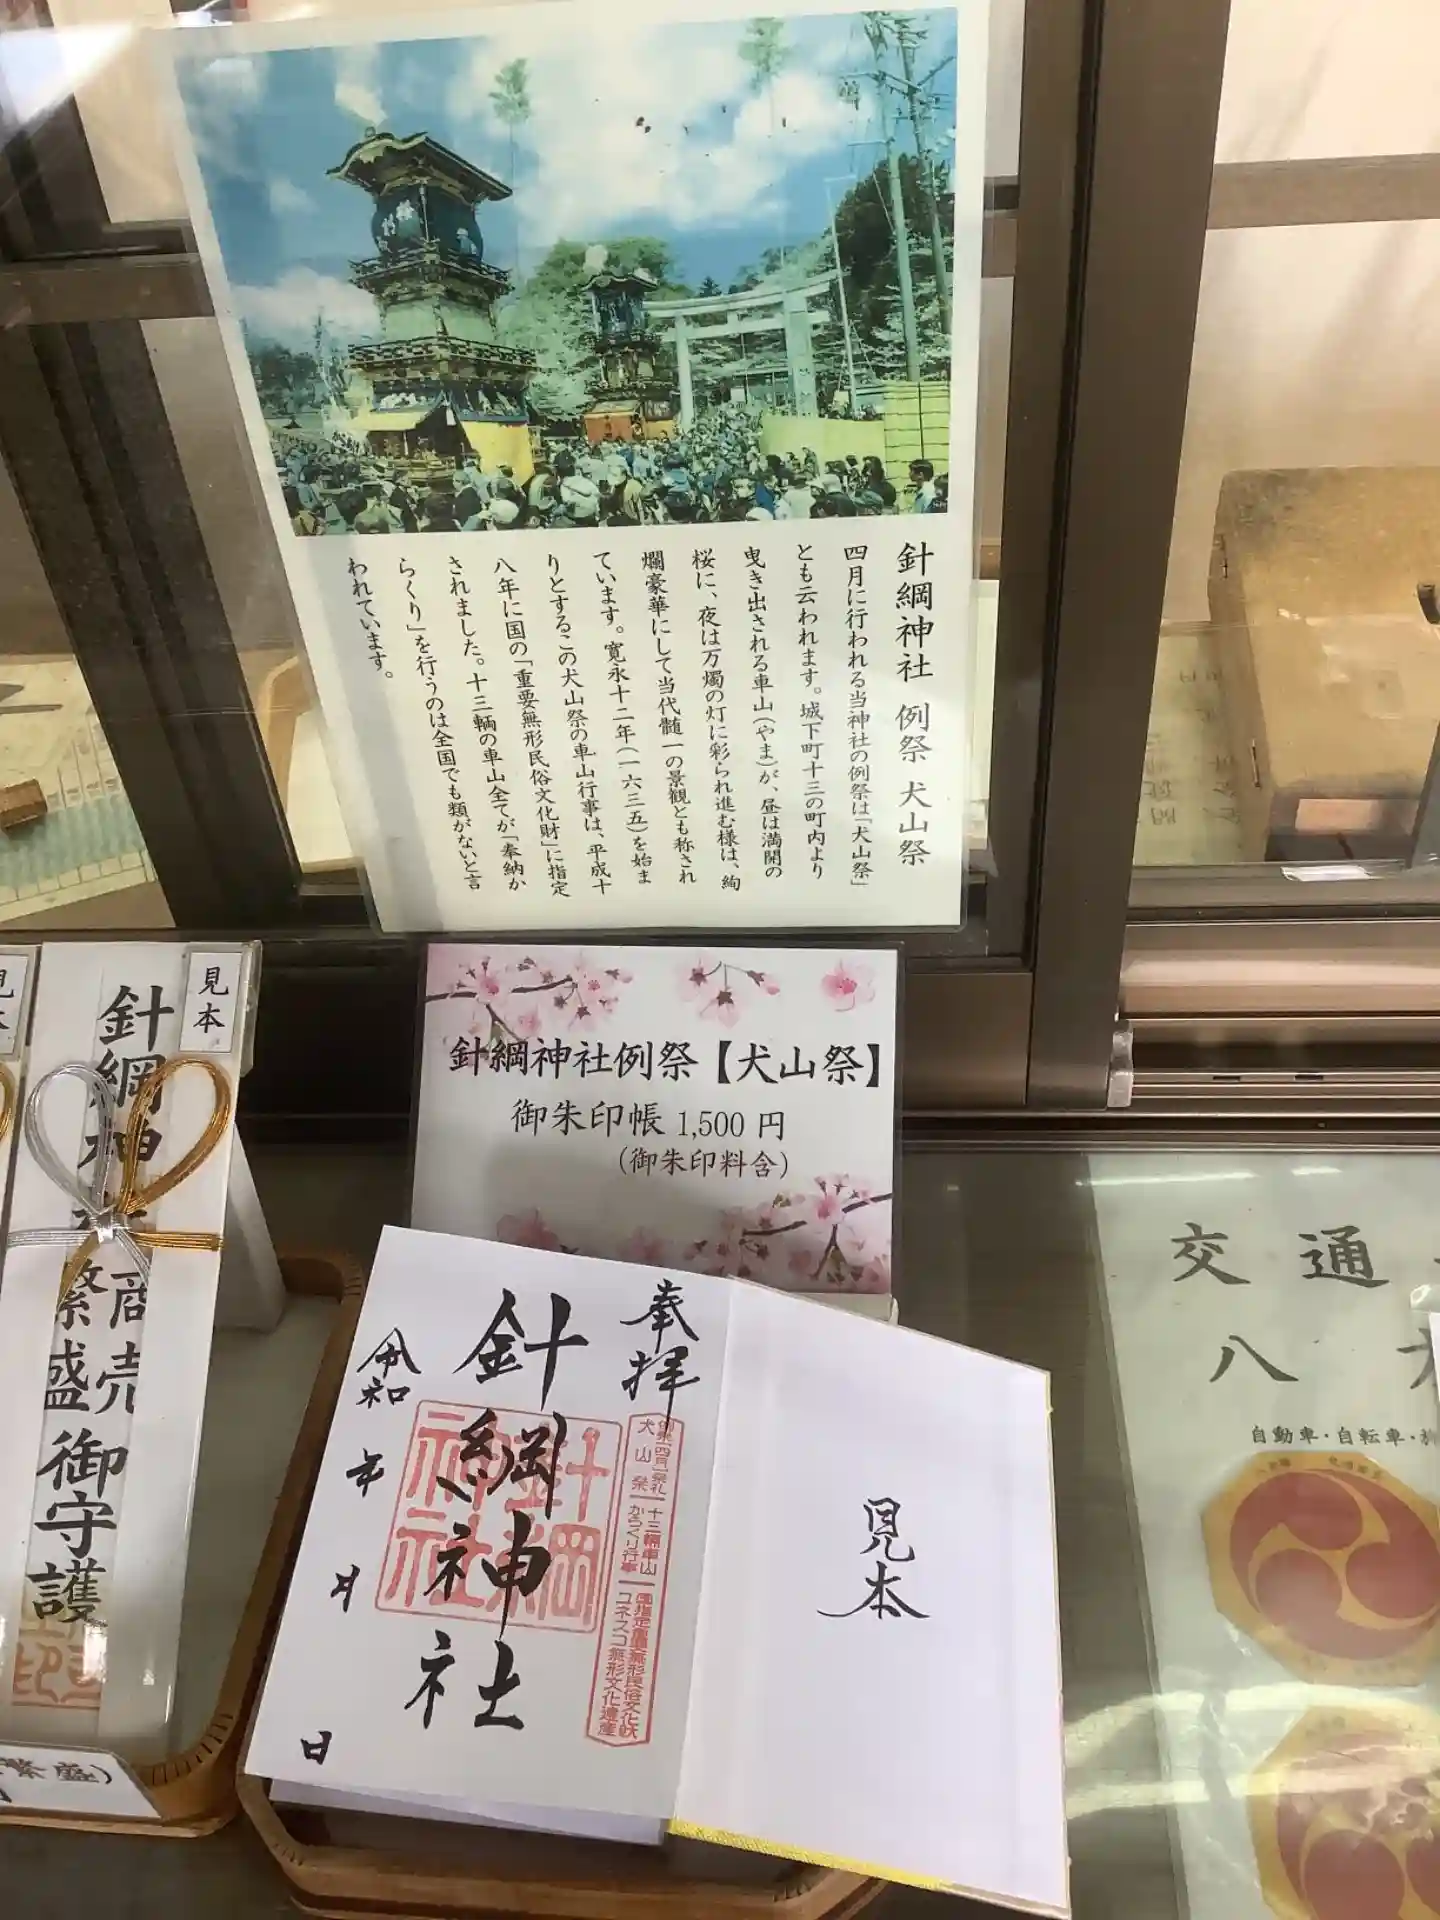 針綱神社 例祭 犬山祭
四月に行われる当神社の例祭は「犬山祭」
とも云われます。城下町十三の町内より
曳き出される車山(やま)が、昼は満開の
桜に、夜は万燭の灯に彩られ進む様は、絢
爛豪華にして当代髄一の景観とも称され
ています。寛永十二年(一六三五)を始ま
りとするこの犬山祭の車山行事は、平成十
八年に国の「重要無形民俗文化財」に指定
されました。十三輌の車山全てが「奉納か
らくり」を行うのは全国でも類がないと言
われています。
見本
針綱神社
商売
繁盛
御守護
針綱神社例祭【犬山祭】
御朱印帳 1,500 円
(御朱印料含)
奉拝
針綱神社
令和 年 月 日
針綱
神社
犬山祭
十三輛車山
からくり行事
ユネスコ無形文化遺産
見本
交通
八
自動車・自転車・